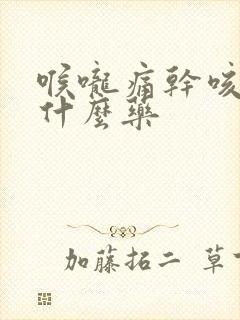 喉嚨痛幹咳
什麼藥
加藤拓二 草